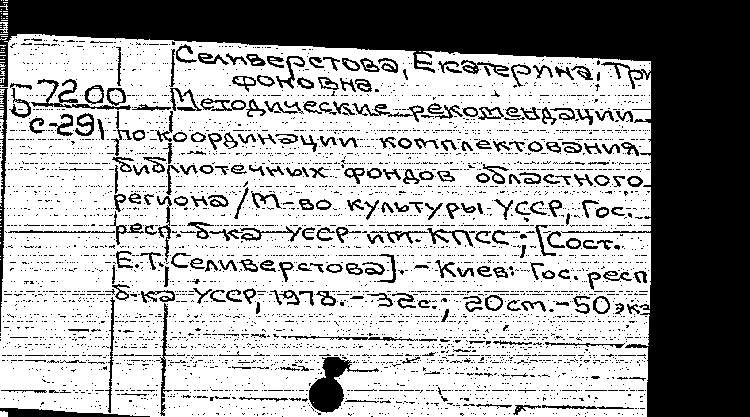 Селиверстова, Екатерина, Три
фоновна.
Б 7200
с-291
Методические рекомендации
по координации комплектования
библиотечных фондов областного
региона / М-во культуры УССР, Гос.
респ. б-ка УССР им. КПСС; [Сост.
Е.Т. Селиверстова]. - Киев: Гос. респ
б-ка УССР, 1978. - 32с.; 20 см. - 50 экз